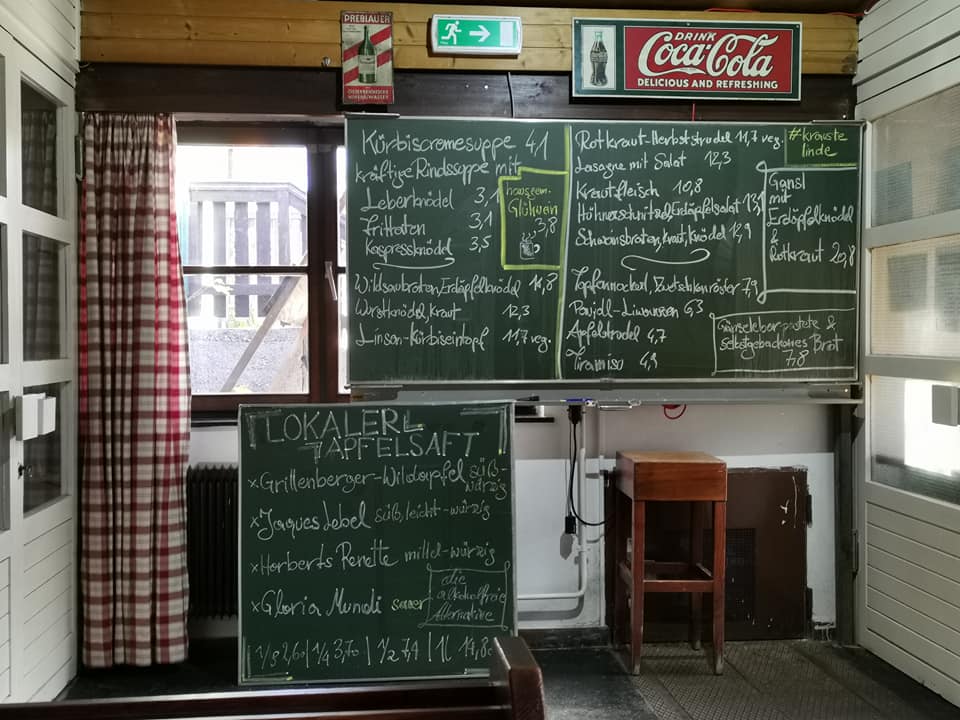 PREBLAUER
DRINK
Coca-Cola
DELICIOUS AND REFRESHING
Kürbiscremesuppe 4,1
kräftige Rindssuppe mit
Leberknödel 3,1
Frittaten 3,1
Kaspressknödel 3,5
hausgem.
Glühwein
3,8
Wildsaubraten, Erdäpfelknödel 14,8
Wurstknödel, Kraut 12,3
Linsen-Kürbiseintopf 11,7 veg.
Rotkraut-Herbststrudel 11,7 veg.
Lasagne mit Salat 12,3
Krautfleisch 10,8
Hühnerschnitzel, Erdäpfelsalat 13,1
Schweinsbraten, Kraut, Knödel 12,9
Topfennockerl, Zwetschkenröster 7,9
Powidl-Liwanzen 6,3
Apfelstrudel 4,7
Tiramisu 4,9
#krauste
linde
Gansl
mit
Erdäpfelknödel
&
Rotkraut 20,8
Gänseleberpastete &
Selbstgebackenes Brot
7,8
LOKALER
APFELSAFT
x Grillenberger-Wildapfel süß-
würzig
x Jaques Lebel süß, leicht-würzig
x Herberts Renette mittel-würzig
x Gloria Mundi sauer
die
alkoholfreie
Alternative
1/8 2,60 | 1/4 3,70 | 1/2 7,4 | 1l 14,80